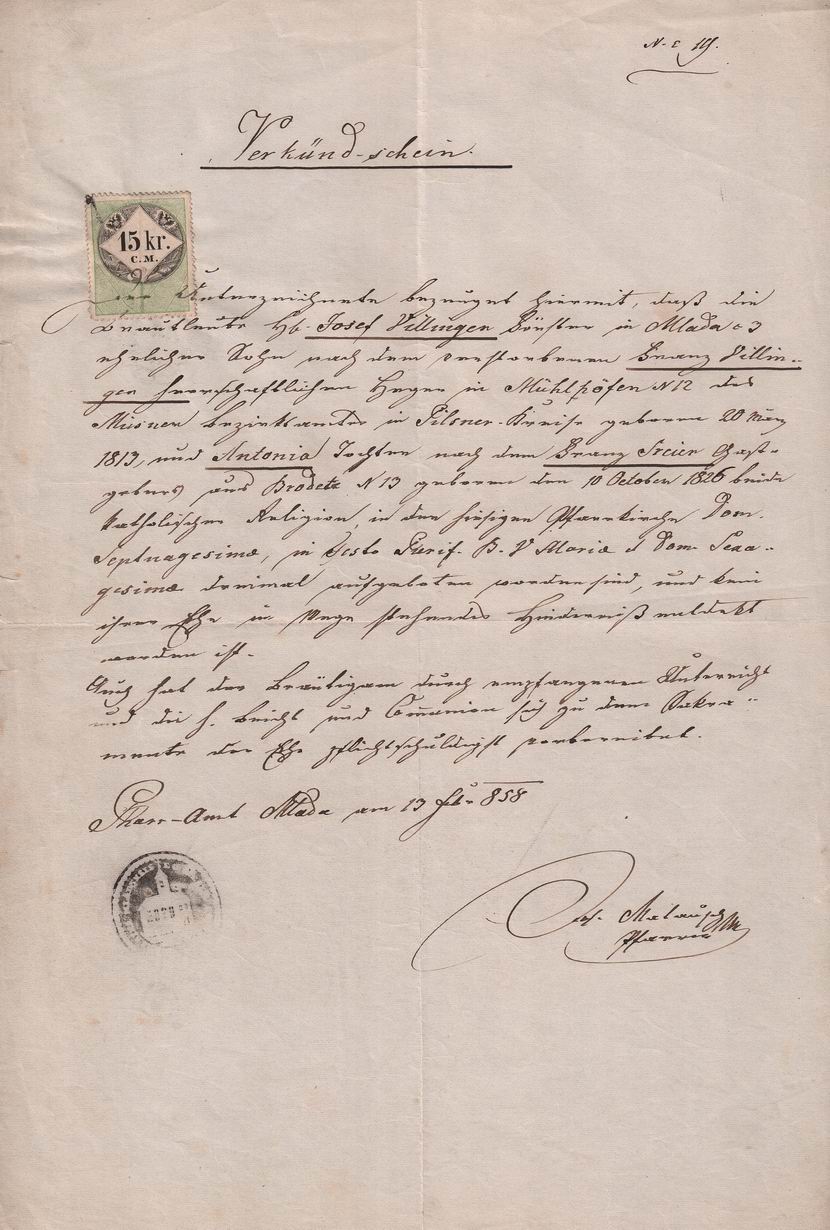 N. E. 19.
Verkünd-schein.
15 kr.
C. M.
Der Unterzeichnete bezeuget hiermit, daß die
Brautleute H. Josef Villinger Förster in Mlada c 3
ehelicher Sohn nach dem verstorbenen Franz Villin-
ger herrschaftlichen Heger in Mühlhöfen N 12 des
Bezirksamtes in Pilsner-Kreise geboren 20 März
1813, und Antonia Tochter nach dem Franz Gast-
gebers aus Brodetz N 13 geboren den 10 October 1826 beide
katholischer Religion, in der hiesigen Pfarrkirche Dom.
Septuagesimæ, in festo Purif. B. V Mariæ & Dom. Sexa-
gesimæ dreimal aufgeboten worden sind, und kein
ihrer Ehe im Wege stehendes Hinderniß entdekt
worden ist.
Auch hat der Bräutigam durch empfangenen Unterricht
und die h. Beicht und Com̅union sich zu dem Sakra-
mente der Ehe pflichtschuldigst vorbereitet.
Pfarr-Amt Mlada am 13 Feb. 858
Jos. Matausch
Pfarrer